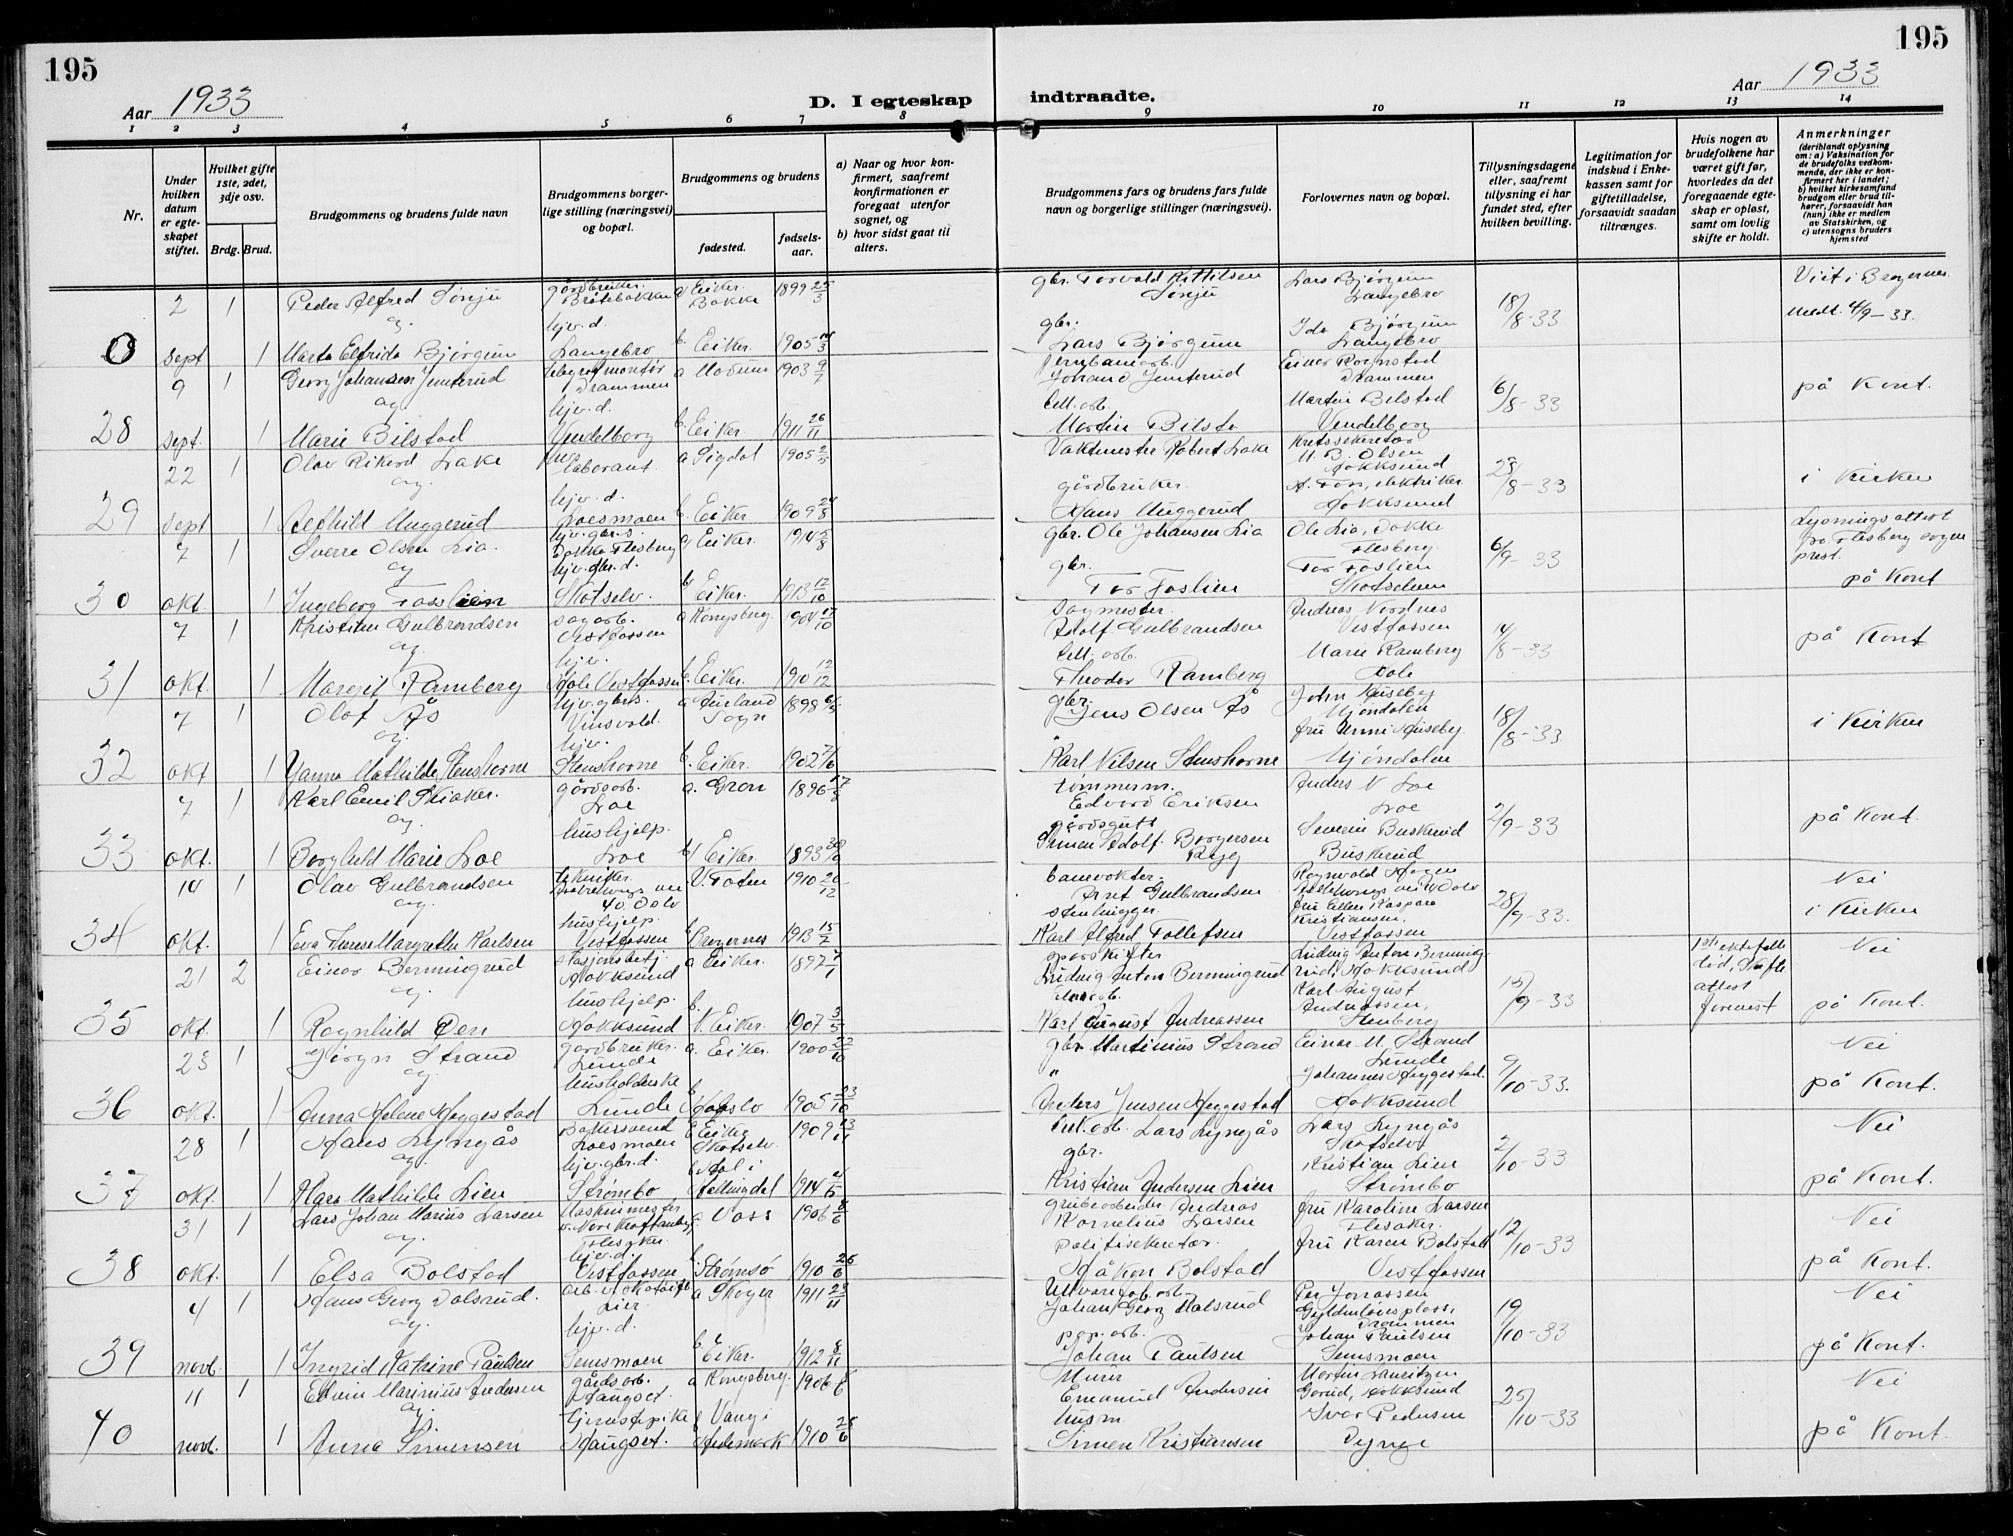 195
195
Aar 1933
D. I egteskap
indtraadte.
Aar 1933
1 2 3 4 5 6 7 8 9 10 11 12 13 14
Nr.
Under hvilken datum er egteskapet stiftet.
Hvilket gifte 1ste, 2det, 3dje osv.
Brdg. Brud.
Brudgommens og brudens fulde navn
Brudgommens borgerlige stilling (næringsvei) og bopæl.
Brudgommens og brudens
fødested.
fødselsaar.
a) Naar og hvor konfirmert, saafremt konfirmationen er foregaat utenfor sognet, og
b) hvor sidst gaat til alters.
Brudgommens fars og brudens fars fulde navn og borgerlige stillinger (næringsvei).
Forlovernes navn og bopæl.
Tillysningsdagene eller, saafremt tillysning ei har fundet sted, efter hvilken bevilling.
Legitimation for indskud i Enkekassen samt for giftetilladelse, forsaavidt saadan tiltrænges.
Hvis nogen av brudefolkene har været gift før, hvorledes da det foregaaende egteskap er opløst, samt om lovlig skifte er holdt.
Anmerkninger (deriblandt oplysning om: a) Vaksination for de brudefolks vedkommende, der ikke er konfirmert her i landet; b) hvilket kirkesamfund brudgom eller brud tilhører, forsaavidt han (hun) ikke er medlem av Statskirken, og c) utensogns bruders hjemsted
0 2 sept 1 Peder Alfred Sønju gårdbruker Ø Eiker Bakke 1899 25/3 gbr. Torvald Kittilsen Sønju Lars Bjørgum Langebro 18/8-33 Viet i Bragernes meldt 4/9-33.
og
1 Marta Elfrida Bjørgum hjv.d. Langebro b. Eiker 1905 gbr. Lars Bjørgum Ida Bjørgum Langebro
28 9 sept. 1 Georg Johansen Jemterud Drammen a Modum 1903 9/7 Jernbanearb. Johan D Jemterud Einar Rognstad Drammen 6/8-33 på Kont.
og
1 Marie Bilstad hjv.d. Vendelborg b. Eiker 1911 26/11 Cell.arb. Martin Bilstad Martin Bilstad Vendelborg
29 22 sept 1 Olav Rikard Lake laborant a Sigdal 1905 2/5 Vaktmester Robert Lake Kretssekretær M. B. Olsen Hokksund 23/8-33 i Kirken
og
1 Aeshild Muggerud hjv.d. Loesmoen b. Eiker 1909 24/8 gårdbruker Hans Muggerud A. Foss, elektriker Hokksund
30 7 okt. 1 Sverre Olsen Lia. hjv.gbr.s. Dokka Flesberg a Eiker 1914 2/8 gbr. Ole Johansen Lia Ole Lia, Dokka Flesberg 6/9-33 Lysnings attest fra Flesberg sogneprest. på Kont
og
1 Ingeborg Fosslien hjv.gbr.d. Skotselv. b Eiker. 1913 12/10 gbr. Tor Foslien Tor Foslien Skotselven
31 7 okt. 1 Kristian Gulbrandsen sagarb. Vestfossen a Kongsberg 1904 17/10 Sagmester Adolf Gulbrandsen Andreas Nordnes Vestfossen 14/8-33 på Kont
og
1 Margit Ramberg hjv. Hole Vestfossen b. Eiker. 1901 12/12 Cell.arb. Theodor Ramberg Marie Ramberg Hole
32 7 okt 1 Olaf Ås hjv.gbrs. Vinsvold. a Aurland Sogn 1898 6/5 gbr. Jens Olsen Ås John Huseby Mjøndalen 18/8-33 i Kirken
og
1 Hanna Mathilde Stenshorne hjv. Stenshorne b. Eiker. 1902 Karl Nilsen Stenshorne fru Unni Huseby. Mjøndalen
33 7 okt. 1 Karl Emil Skiaker. gårdsarb. Loe a. Gran 1896 17/8 tømmerm. Edvard Eriksen Anders N Loe Loe 2/9-33 på Kont.
og
1 Borghild Marie Loe hushjelp. Loe b Eiker. 1893 gårdsgutt Simen Adolf Borgersen Severin Buskerud Buskerud
34 14 okt. 1 Olav Gulbrandsen tekniker V. Toten 1910 20/12 banevokter. Arnt Gulbrandsen Ragnvald Hagen 28/9-33. Nei i Kirken
og
1 Eva Therese Margrethe Karlsen hushjelp. Vestfossen b Bragernes 1913 15/2 stenhugger. Karl Alfred Tollefsen fru Ellen Kaspara Kristiansen. Vestfossen
35 21 okt. 2 Einar Bermingrud stasjonsbetj. Hokksund a Eiker. 1897 7/1 sporskifter Ludvig Anton Bermingrud Ludvig Anton Bermingrud, Hokksund 15/9-33 1ste ektefelle død, Skifteattest forevist Nei på Kont.
og
1 Ragnhild Øen hushjelp. Hokksund b. N. Eiker. 1907 3/5 Karl August Andreassen Karl August Andreassen, Stenberg
36 23 okt. 1 Jørgn Strand gårdbruker. Lunde a. Eiker. 1900 22/10 gbr. Martinius Strand Einar M. Strand Lunde 9/10-33. Nei på Kont.
og
1 Anna Helene Heggestad husholderske Lunde b Modum 1905 23/10 " Anders Jensen Heggestad Johannes Heggestad. Hokksund
37 28 okt. 1 Hans Lyngås Loesmoen Eiker Skotselv. 1909 13/11 Lars Lyngås Lars Lyngås Skotselv 2/10-33 Nei på Kont.
og
1 Klara Mathilde Lien hjv.gbr.d. Strømbo b Hol i Hallingdal 1914 gbr. Kristian Andersen Lien Kristian Lien Strømbo
38 31 okt. 1 Lars Johan Marius Larsen Maskinmester v. Nore Kraftanlegg Flesaker a. Voss 1906 8/6 grubearbeider Andreas Kornelius Larsen fru Karoline Larsen Flesaker. 12/10-33 Nei på Kont.
og
1 Elsa Bolstad hjv.d. Vestfossen b. Strømsø 1910 26/6 politisekretær. Håkon Bolstad fru Karen Bolstad Vestfossen
39 4 novb. 1 Hans Georg Dalsrud. Lier a Skoger 1911 23/11 Johan Georg Dalsrud Per Jonassen Gyldenløvs plass, Drammen 19/10-33 Nei på Kont.
og
1 Ingrid Katrine Paulsen hjv.d. Semsmoen b Eiker. 1912 8/11 pap.arb. Johan Paulsen Johan Paulsen Semsmoen
40 11 novb. 1 Edvin Marinius Andersen gårdsarb. Haugset. a Kongsberg. 1906 Murer Emanuel Andersen Martin Lauritzen Gorud, Hokksund 25/10-33 Nei på Kont.
og
1 Anna Simensen tjenestepike Haugset. b Vang i Hedemark 1910 25/6 husm. Simen Kristiansen Ivar Pedersen